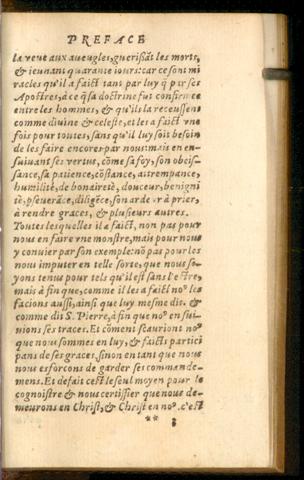 PREFACE
la veue aux aueugles, guerissāt les morts,
& ieunant quarante iours: car ce sont mi
racles qu'il a faict tant par luy q̄ par ses
Apostres, à ce q̄ sa doctrine fut confirmee
entre les hommes, & qu'ils la receussent
comme diuine & celeste, et les a faict vne
fois pour toutes, sans qu'il luy soit besoin
de les faire encores par nous: mais en en-
suiuant ses vertus, cōme sa foy, son obeis-
sance, sa patience, cōstance, attrempance,
humilité, de bonaireté, douceur, benigni
té, pseuerāce, diligēce, son ardeur à prier,
à rendre graces, & plusieurs autres.
Toutes lesquelles il a faict, non pas pour
nous en faire vne monstre, mais pour nous
y conuier par son exemple: nō pas pour les
nous imputer en telle sorte, que nous so-
yons tenus pour tels qu'il est sans l'estre,
mais à fin que, comme il les a faict noꝰ les
facions aussi, ainsi que luy mesme dit. &
comme dit S. Pierre, à fin que noꝰ en sui-
uions ses traces. Et cōment sçaurions noꝰ
que nous sommes en luy, & faicts partici
pans de ses graces, sinon en tant que nous
nous esforcons de garder ses commande-
mens. Et de fait c'est le seul moyen pour le
cognoistre & nous certifier que nous de-
meurons en Christ, & Christ en noꝰ. c'est
** 3